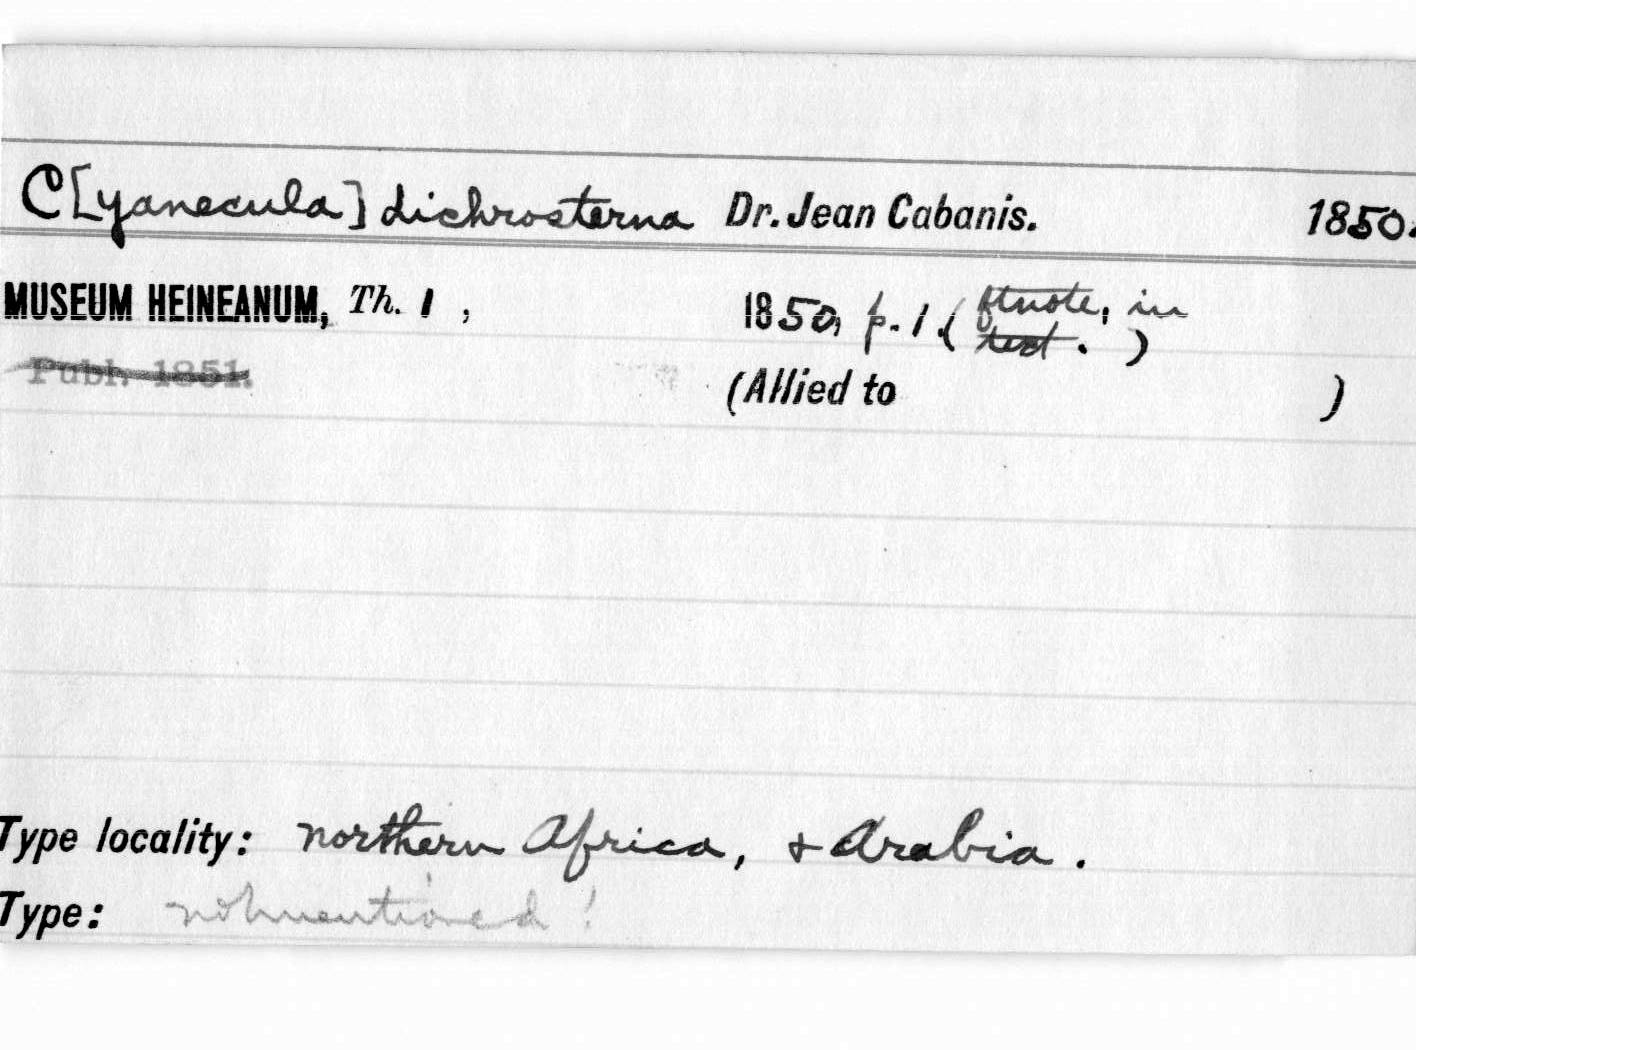 C[yanecula] dichrosterna Dr. Jean Cabanis. 1850.
MUSEUM HEINEANUM, Th. 1 , 1850, p. 1. (ftnote, in
text. )
Publ. 1851. (Allied to )
Type locality: northern Africa, + Arabia .
Type: not mentioned !